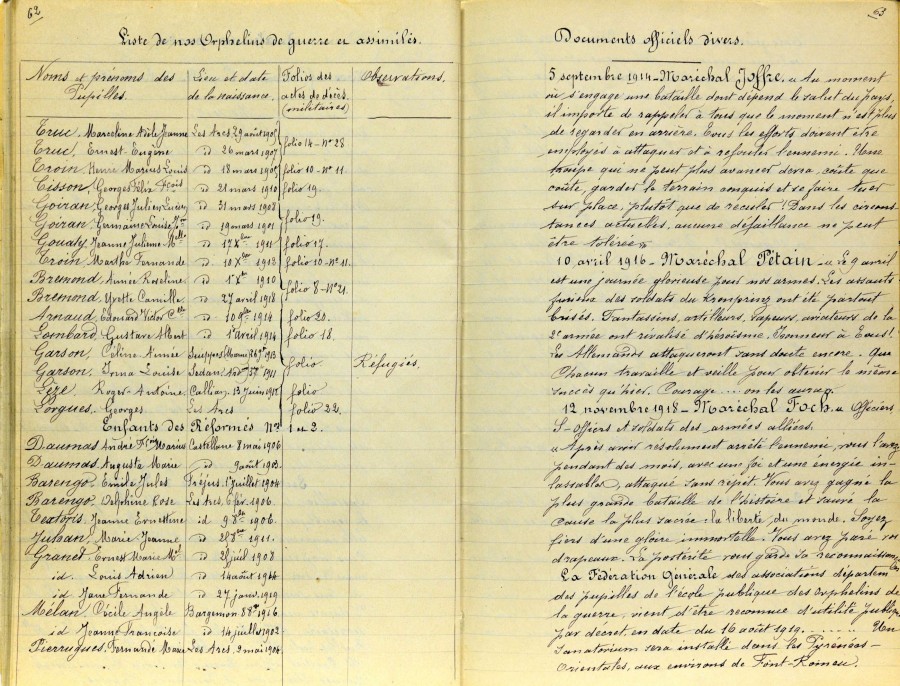 62
Liste de nos Orphelins de guerre et assimilés.
Noms et prénoms des Pupilles.
Lieu et date de la naissance.
Folios des actes de décès (militaires)
Observations.
Truc, Marceline Adèle Jeanne Les Arcs 29 août
Truc, Ernest Eugène id 26 mars 1907 folio 14 - N° 28
Troin Henri Marius Louis id 18 mars folio 10 - N° 11.
Tisson, Georges Félix Fçois id 21 mars 1910 folio 19.
Goiran, Georges Julien Lucien id 31 mars 1908
Goiran, Germaine Louise id 19 mars 1901 folio 19.
Goualy, Jeanne Julienne id 1911 folio 17.
Troin, Marthe Fernande id 1912 folio 10 - N° 11.
Bremond, Aimée Roseline id 1910
Bremond, Yvette Camille id 27 avril 1918 folio 8 - N° 21.
Arnaud, Edouard Victor id 10 1914 folio 20.
Lombard, Gustave Albert id 1er avril 1914 folio 18.
Garson, Céline Aimée 1913
Garson, Irma Louise Sedan 1911 folio Réfugiés.
Roger Antoine Callian, 13 Juin folio
Lorgues, Georges Les Arcs folio 22.
Enfants des Réformés N° 1 et 2.
Daumas André Marius Castellane 8 mai 1906
Daumas, Auguste Marie id 9 août
Barengo, Emile Jules Fréjus, 1er Juillet 1904
Barengo, Delphine Rose Les Arcs, 1906.
Textoris, Jeanne Ernestine id 9 8bre 1906.
Juban, Marie Jeanne id 1911.
Granet Ernest Marie id 1908
id. Louis Adrien id 14 août
id Jane Fernande id 27 janv. 1919
Mélan, Cécile Angèle Bargemon
id Jeanne Françoise id 14 juillet 1902
Pierrugues, Fernande Marie Les Arcs, 2 mai 1904.
63
Documents officiels divers.
5 septembre 1914 - Maréchal Joffre. « Au moment
où s'engage une bataille dont dépend le salut du pays,
il importe de rappeler à tous que le moment n'est plus
de regarder en arrière. Tous les efforts doivent être
employés à attaquer et à refouler l'ennemi. Une
troupe qui ne peut plus avancer devra, coûte que
coûte, garder le terrain conquis et se faire tuer
sur place, plutôt que de reculer. Dans les circons-
tances actuelles, aucune défaillance ne peut
être tolérée »
10 avril 1916 - Maréchal Pétain - « Le 9 avril
est une journée glorieuse pour nos armes. Les assauts
furieux des soldats du Kronprinz ont été partout
brisés. Fantassins, artilleurs, sapeurs, aviateurs de la
2e armée ont rivalisé d'héroïsme. Honneur à Tous !
Les Allemands attaqueront sans doute encore. Que
chacun travaille et veille pour obtenir le même
succès qu'hier. Courage... on les aura.
12 novembre 1918 - Maréchal Foch. « Officiers
S-officiers et soldats des armées alliées.
« Après avoir résolument arrêté l'ennemi, vous l'avez
pendant des mois, avec une foi et une énergie in-
lassables, attaqué sans répit. Vous avez gagné la
plus grande bataille de l'histoire et sauvé la
cause la plus sacrée : la liberté du monde. Soyez
fiers d'une gloire immortelle. Vous avez paré vos
drapeaux. La postérité vous garde sa reconnaissance
La Fédération Générale des associations départemles
des pupilles de l'école publique des Orphelins de
la guerre vient d'être reconnue d'utilité publique
par décret en date du 16 août 1919. ........ Un
sanatorium sera installé dans les Pyrénées-
Orientales, aux environs de Font-Romeu.